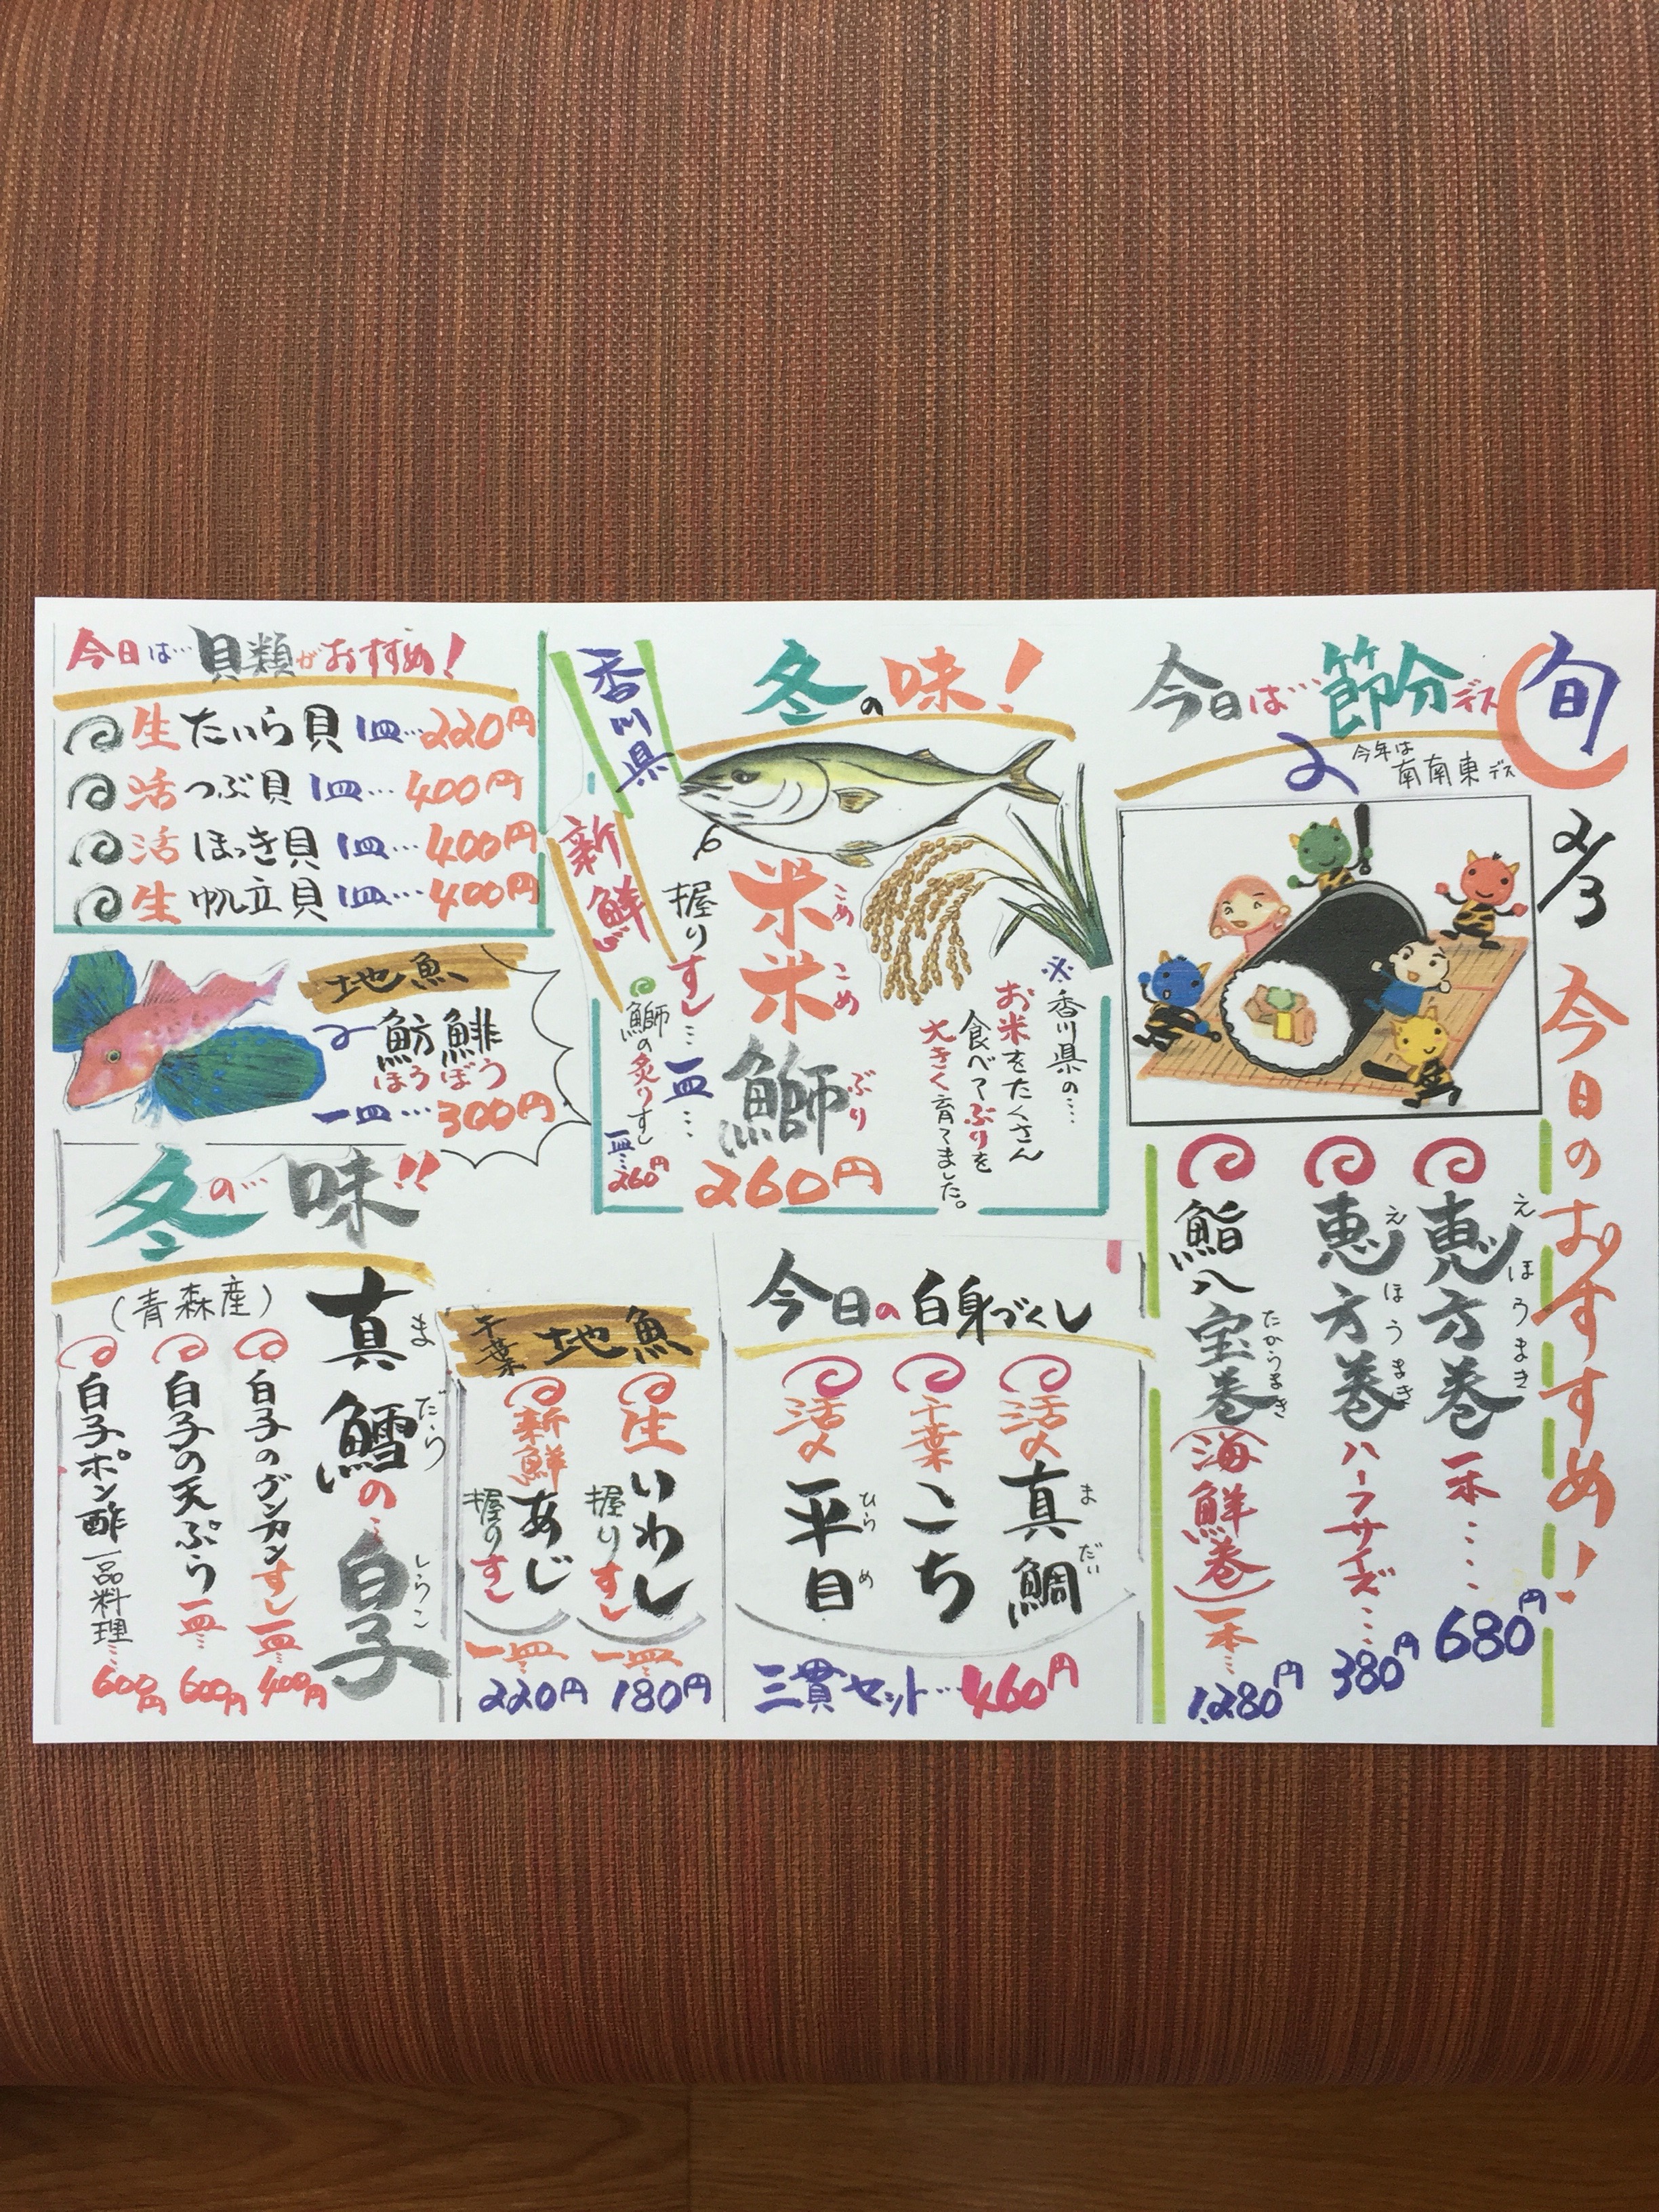 旬
2/3
今日のおすすめ!
今日は…節分デス
今年は
南南東デス
恵方巻 一本…… 680円
えほうまき
恵方巻 ハーフサイズ… 380円
えほうまき
鮨八宝巻(海鮮巻)一本… 1,280円
たからまき
冬の味!
香川県
新鮮
米米鰤
こめこめぶり
握りすし…一皿…
260円
鰤の炙りすし
一皿…260円
※香川県の…
お米をたくさん
食べてぶりを
大きく育てました。
今日は…貝類がおすすめ!
生たいら貝 1皿…220円
活つぶ貝 1皿…400円
活ほっき貝 1皿…400円
生帆立貝 1皿…400円
地魚
魴鯡
ほうぼう
一皿…300円
今日の白身づくし
活〆真鯛
まだい
千葉こち
活〆平目
ひらめ
三貫セット…460円
千葉地魚
生いわし
握りすし
一皿…
180円
新鮮あじ
握りすし
一皿…
220円
冬の…味!!
真鱈の…白子
まだら
しらこ
(青森産)
白子のグンカンすし一皿…400円
白子の天ぷら一皿…600円
白子ポン酢一品料理…600円